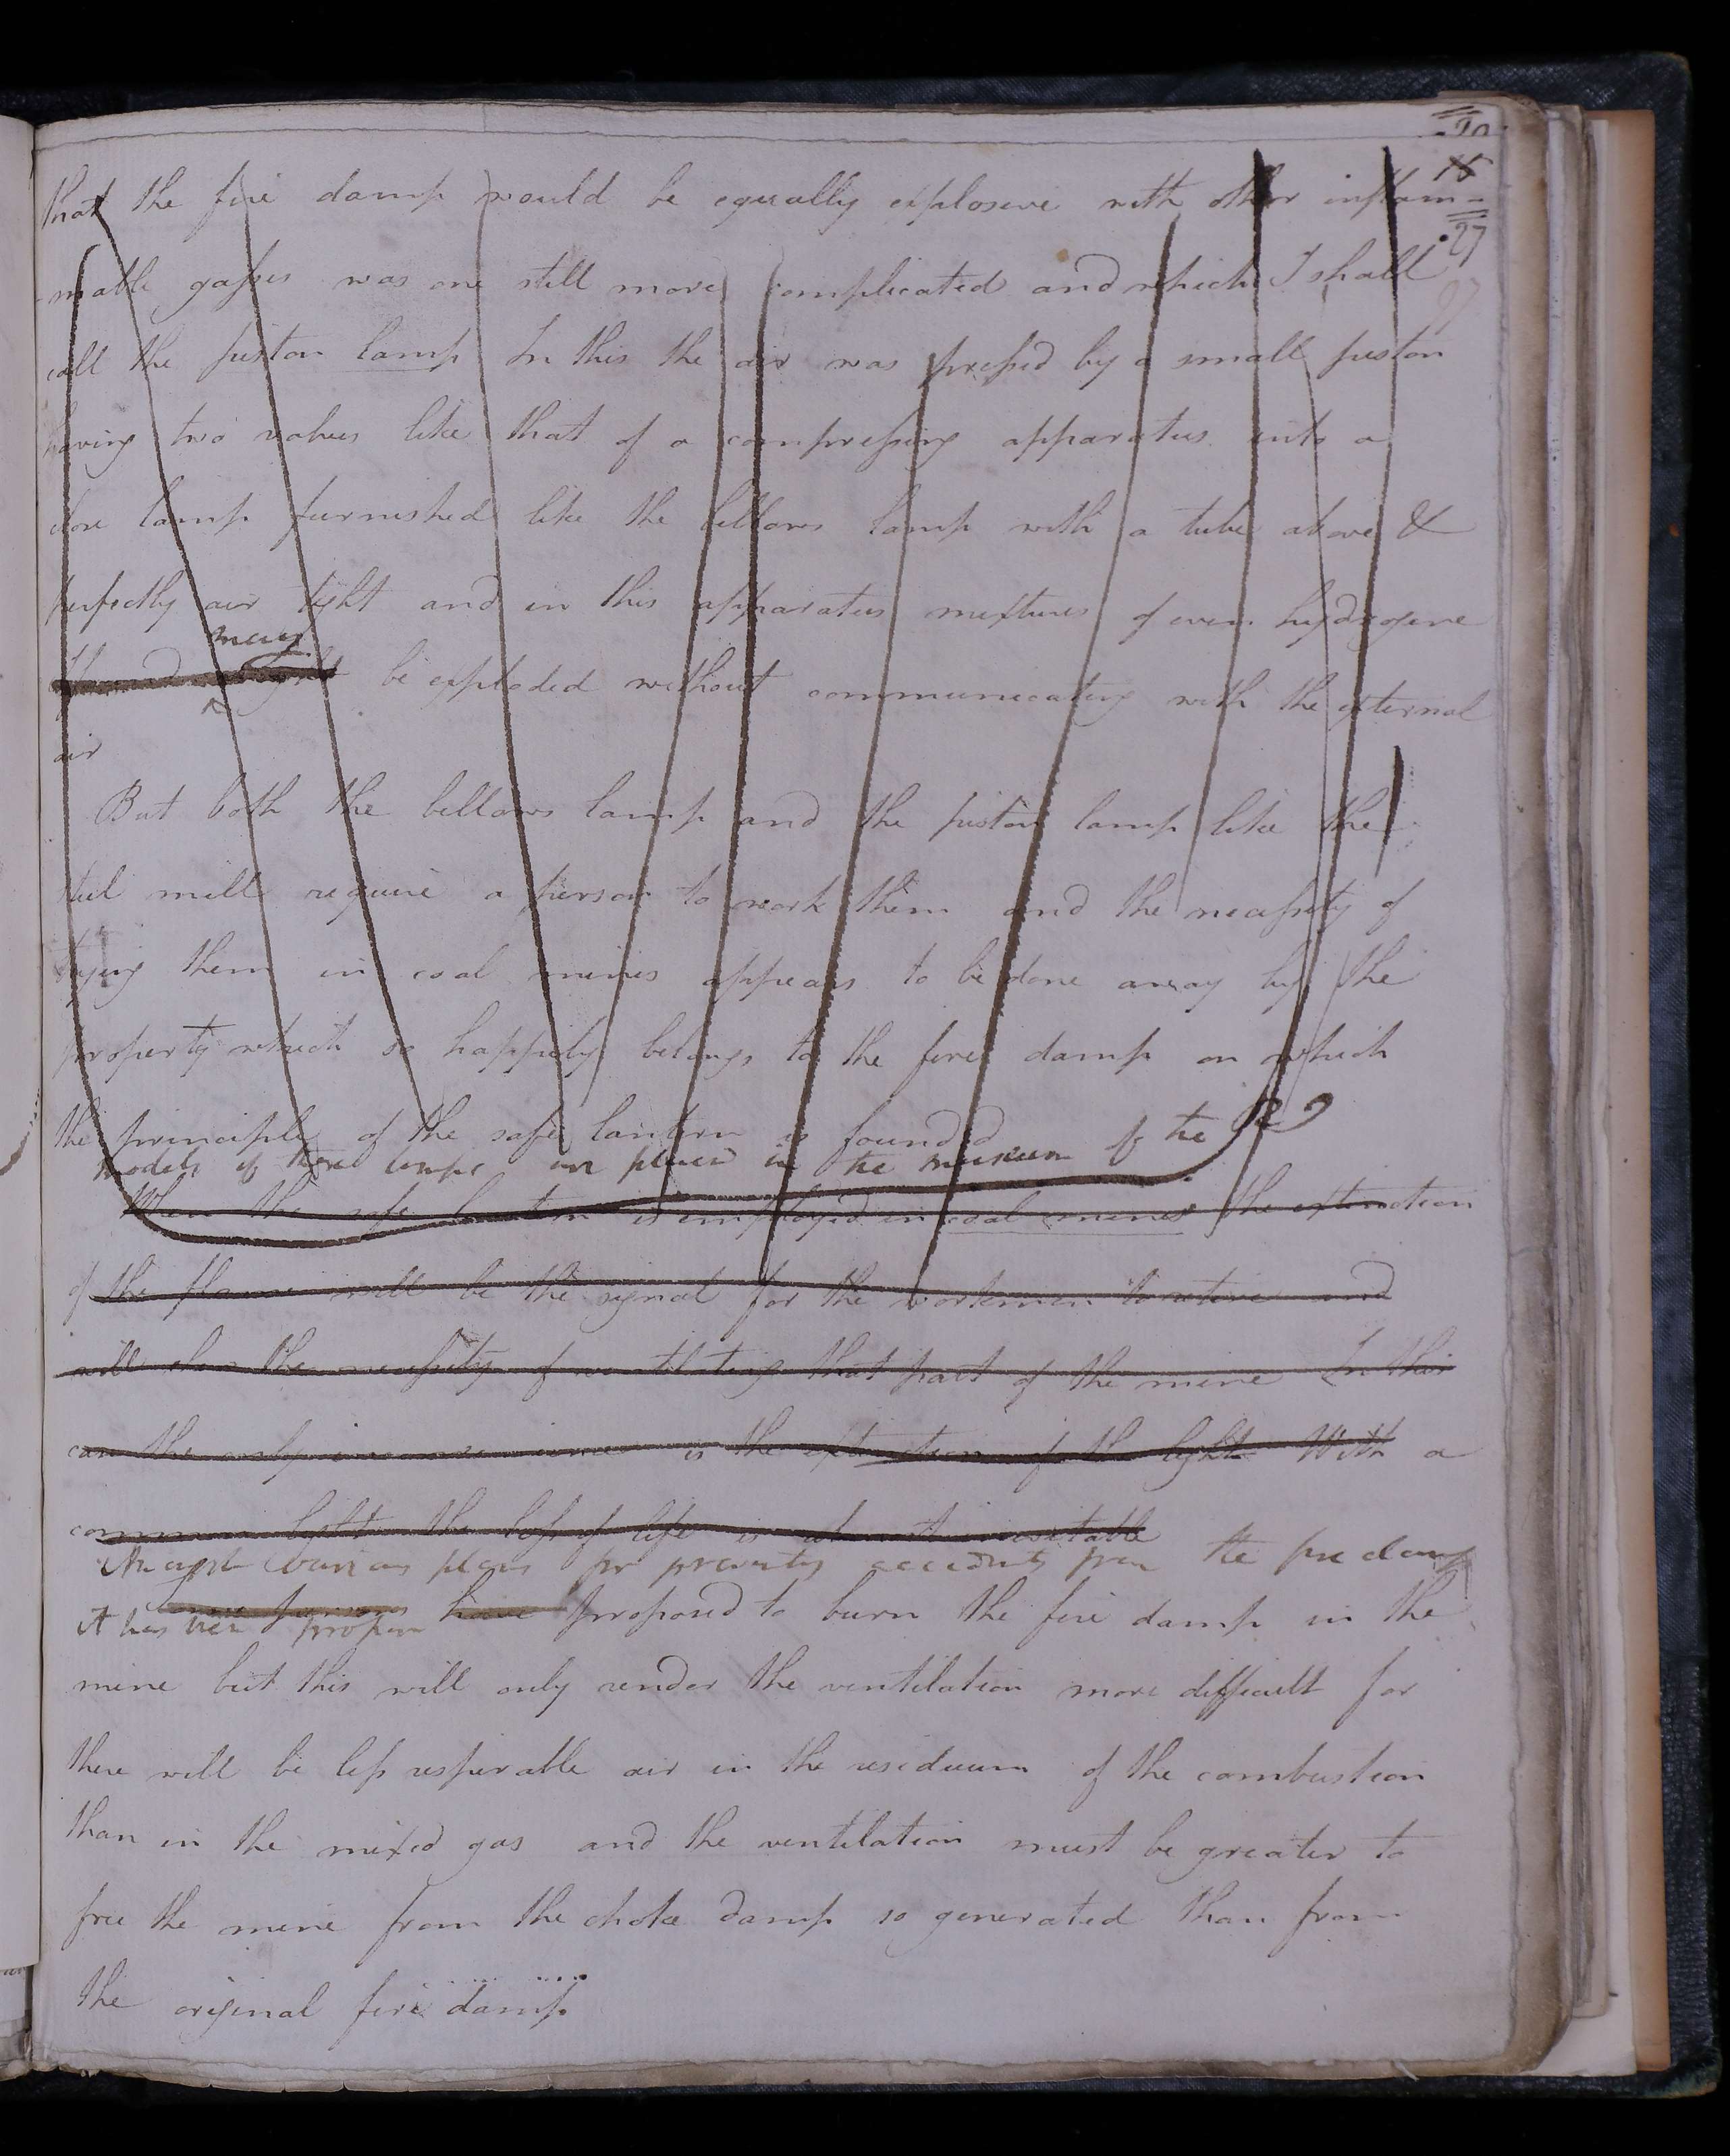 20
15
27
that the fire damp would be equally explosive with other inflam=
-mable gasses was one still more complicated and which I shall
call the piston lamp In this the air was pressed by a small piston
having two valves like that of a compressing apparatus into a
close lamp furnished like the bellows lamp with a tube above &
perfectly air tight and in this apparatus mixtures of even hydrogene
may
be exploded without communicating with the external
air
But both the bellows lamp and the piston lamp like the
steel mill require a person to work them and the necessity of
trying them in coal mines appears to be done away by the
property which so happily belongs to the fire damp on which
the principle of the safe lantern is founded
Models of these lamps are placed in the museum of the RI
When the safe lantern is employed in coal mines the extinction
of the flame will be the signal for the workmen to retire and
will shew the necessity of ventilating that part of the mine In this
case the only inconvenience is the extinction of the light With a
common light the loss of life is almost inevitable
Amongst various plans for preventing accidents from the fire damp
Some persons have proposed to burn the fire damp in the
it has been propos
mine but this will only render the ventilation more difficult for
there will be less respirable air in the residuum of the combustion
than in the mixed gas and the ventilation must be greater to
free the mine from the choke damp so generated than from
the original fire damp